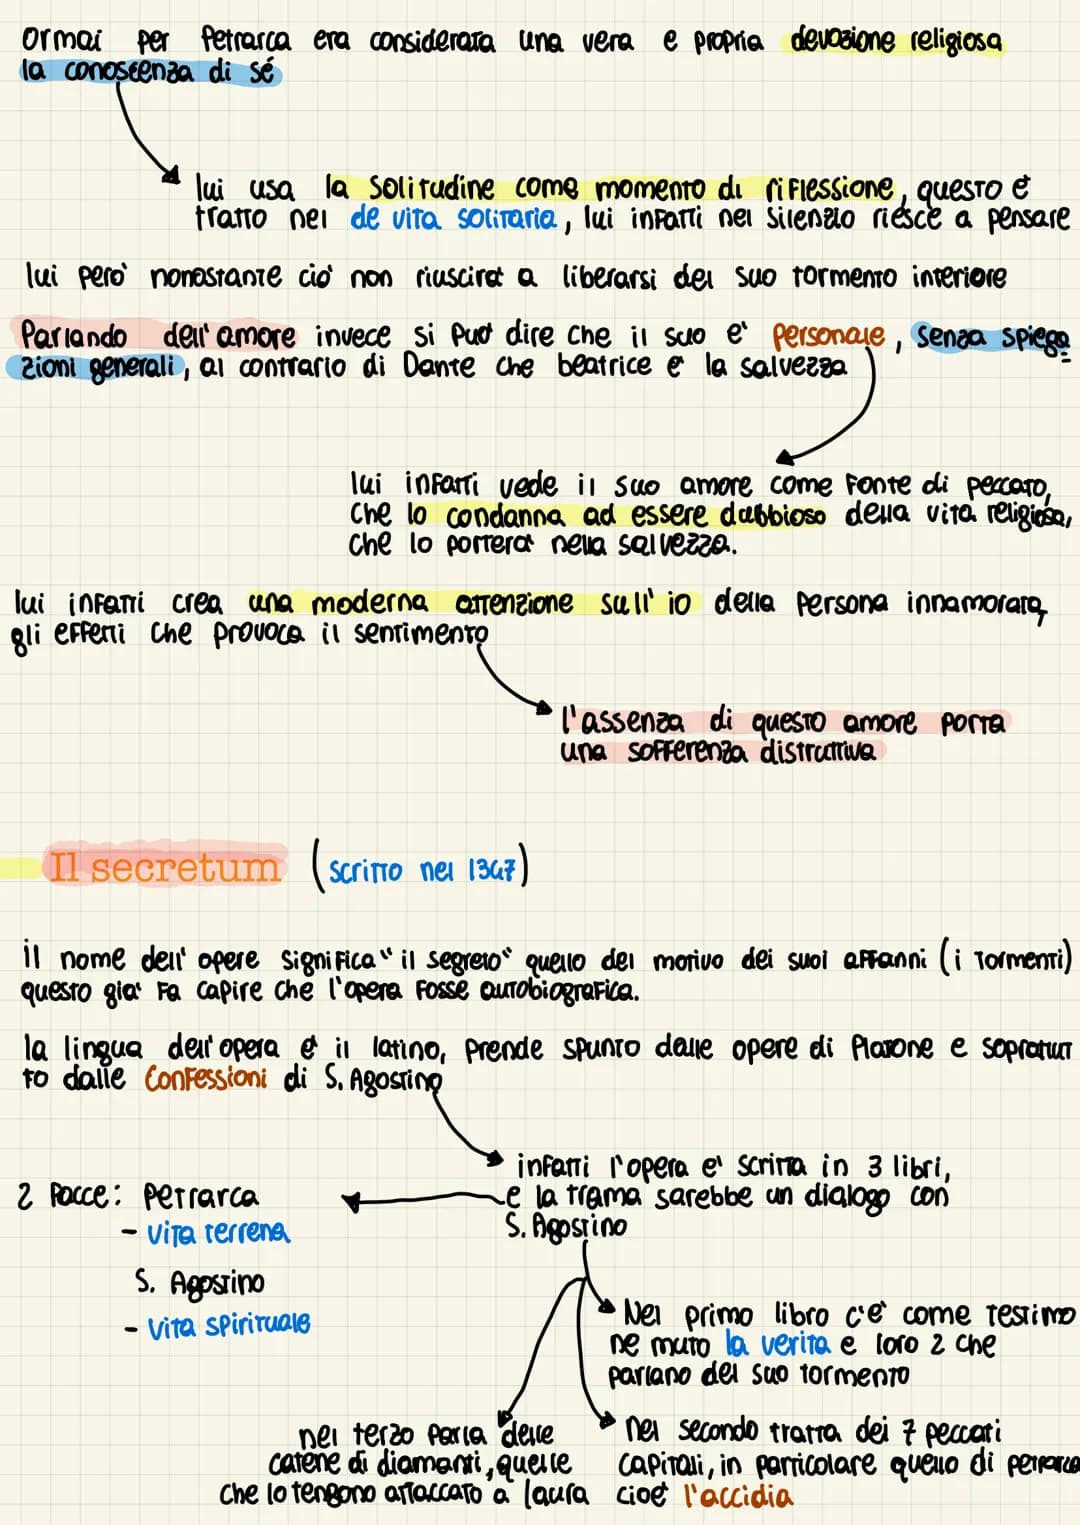 ormai per Petrarca era considerata una vera e propria devozione religiosa
la conoscenza di sé
lui usa la solitudine come momento di riflessione, questo è
tratto nel de vita solitaria, lui infatti nel silenzio riesce a pensare
lui però nonostante ciò non riuscirà a liberarsi del suo tormento interiore
Parlando dell'amore invece si può dire che il suo è personale, senza spiega
zioni generali, al contrario di Dante che beatrice è la salvezza
lui infatti vede il suo amore come fonte di peccato,
che lo condanna ad essere dubbioso della vita religiosa,
che lo porterà nella salvezza.
lui infatti crea una moderna attenzione sull'io della persona innamorata,
gli effetti che provoca il sentimento
l'assenza di questo amore porta
una sofferenza distruttiva
Il secretum (scritto nel 1347)
il nome dell'opere significa "il segreto" quello del motivo dei suoi affanni (i tormenti)
questo già fa capire che l'opera fosse autobiografica.
la lingua dell'opera è il latino, prende spunto dalle opere di Platone e sopratut
to dalle Confessioni di S. Agostino
infatti l'opera è scritta in 3 libri,
e la trama sarebbe un dialogo con
S. Agostino
2 facce: Petrarca
- vita terrena
S. Agostino
- vita spirituale
Nel primo libro c'è come testimo
ne muto la verità e loro 2 che
parlano del suo tormento
nel secondo tratta dei 7 peccati
capitali, in particolare quello di petrarca
cioè l'accidia
nel terzo parla delle
catene di diamanti, quelle
che lo tengono attaccato a laura